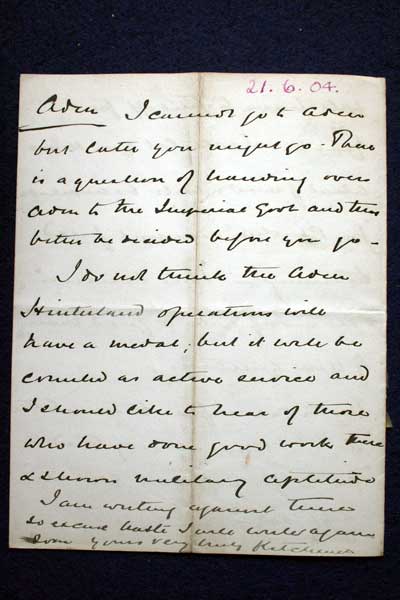 21.6.04.
Aden I cannot go to Aden
but later you might go. There
is a question of handing over
Aden to the Imperial Govt and this
better be decided before you go -
I do not think the Aden
Hinterland operations will
have a medal; but it will be
counted as active service and
I should like to hear of those
who have done good work there
& shown military aptitude
I am writing against time
so excuse haste I will write again
soon yours very truly Kitchener